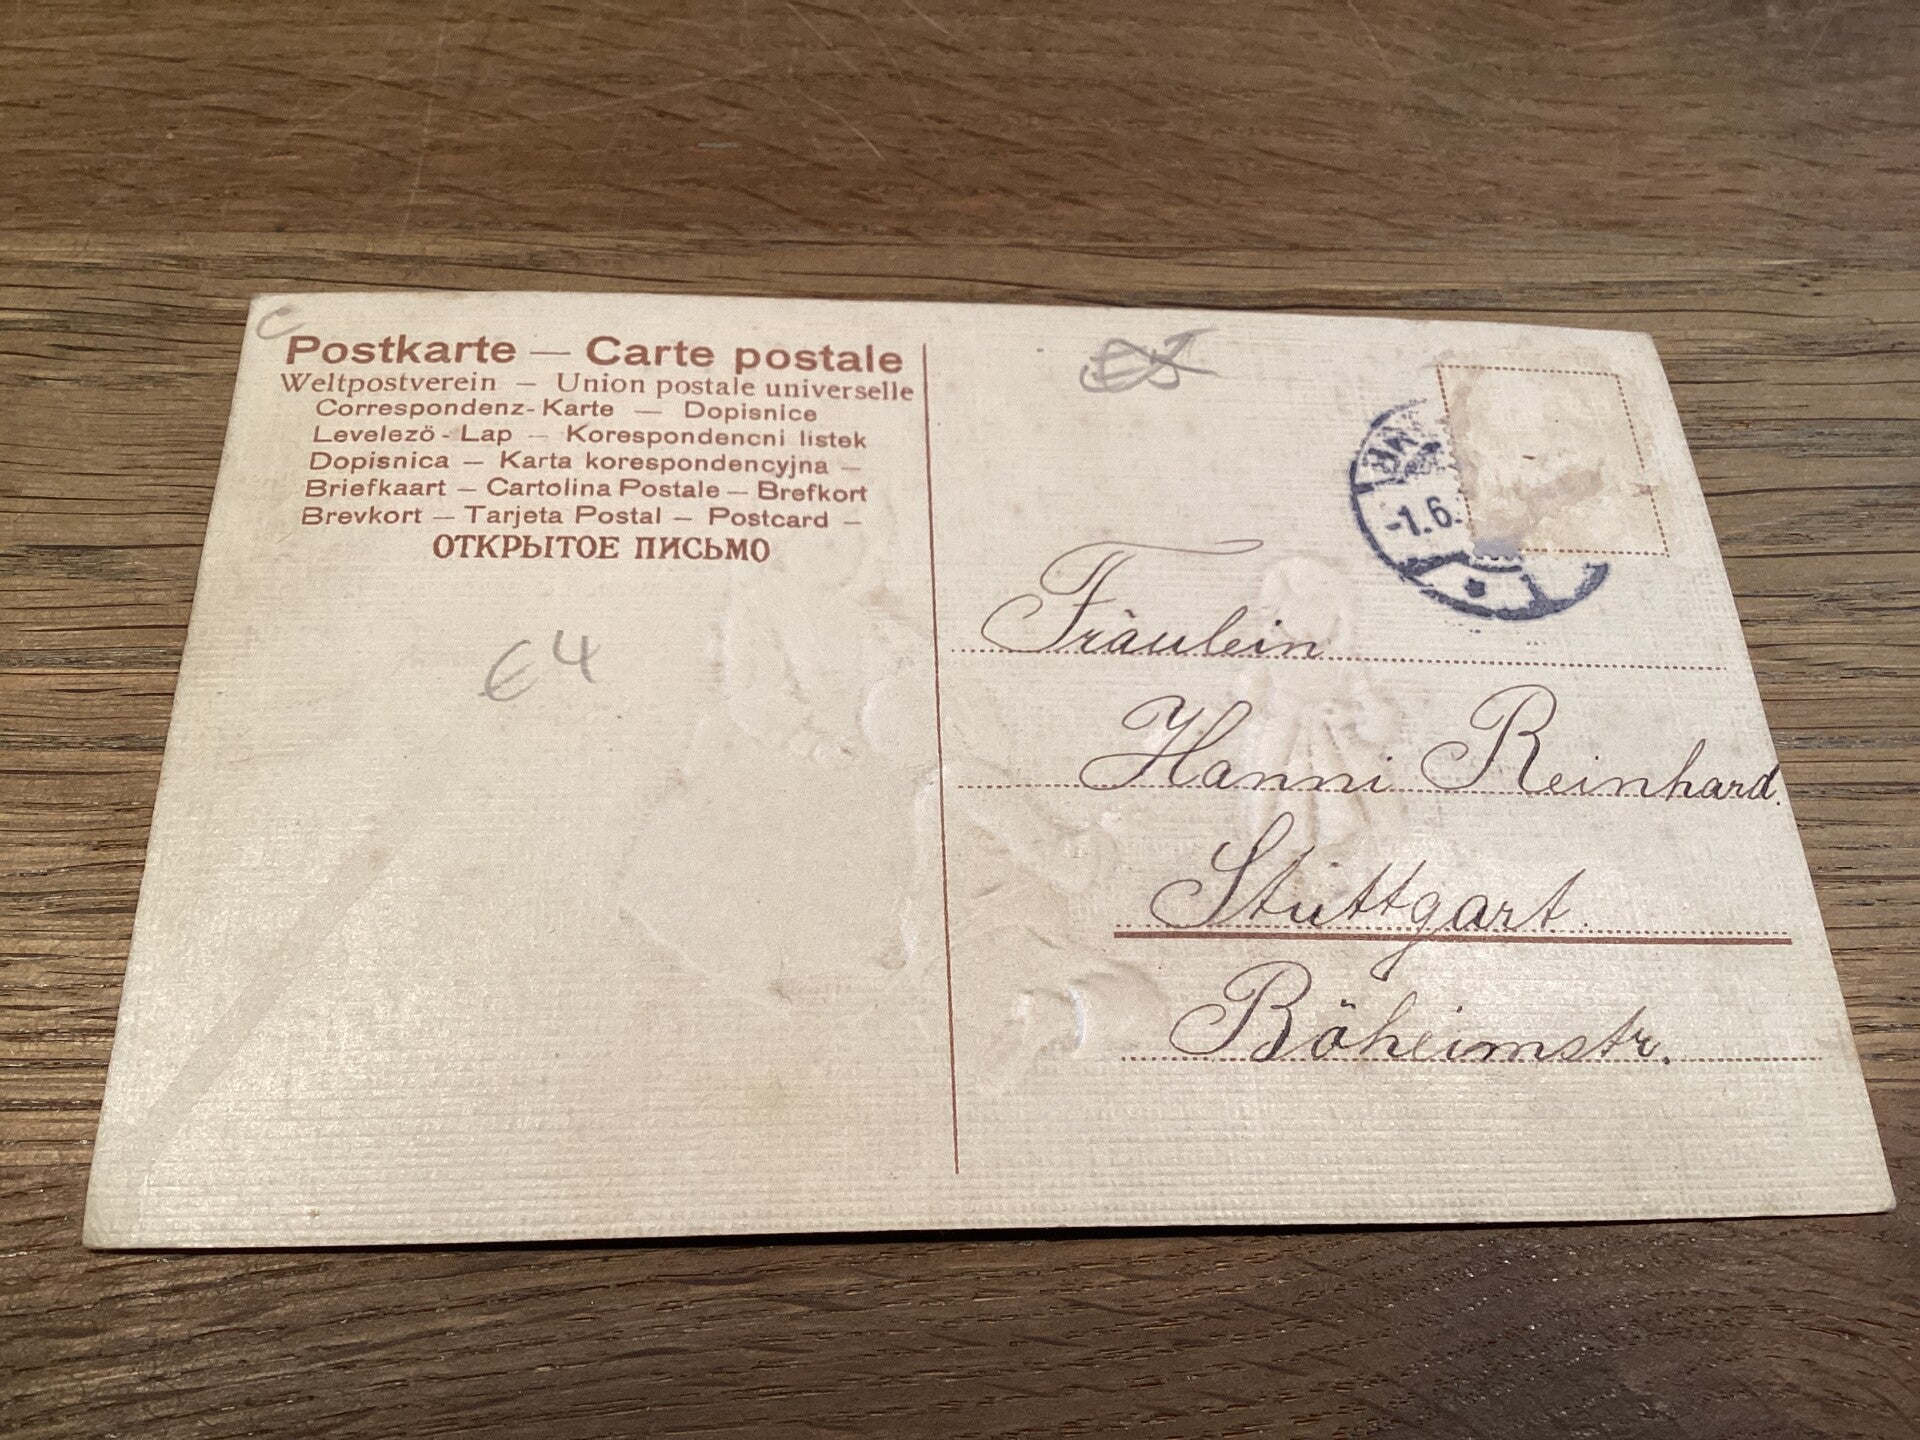 Postkarte — Carte postale
Weltpostverein — Union postale universelle
Correspondenz-Karte — Dopisnice
Levelező-Lap — Korespondencni listek
Dopisnica — Karta korespondencyjna —
Briefkaart — Cartolina Postale — Brefkort
Brevkort — Tarjeta Postal — Postcard —
ОТКРЫТОЕ ПИСЬМО
€4
-1.6.
Fräulein
Hanni Reinhard.
Stuttgart.
Böheimstr.